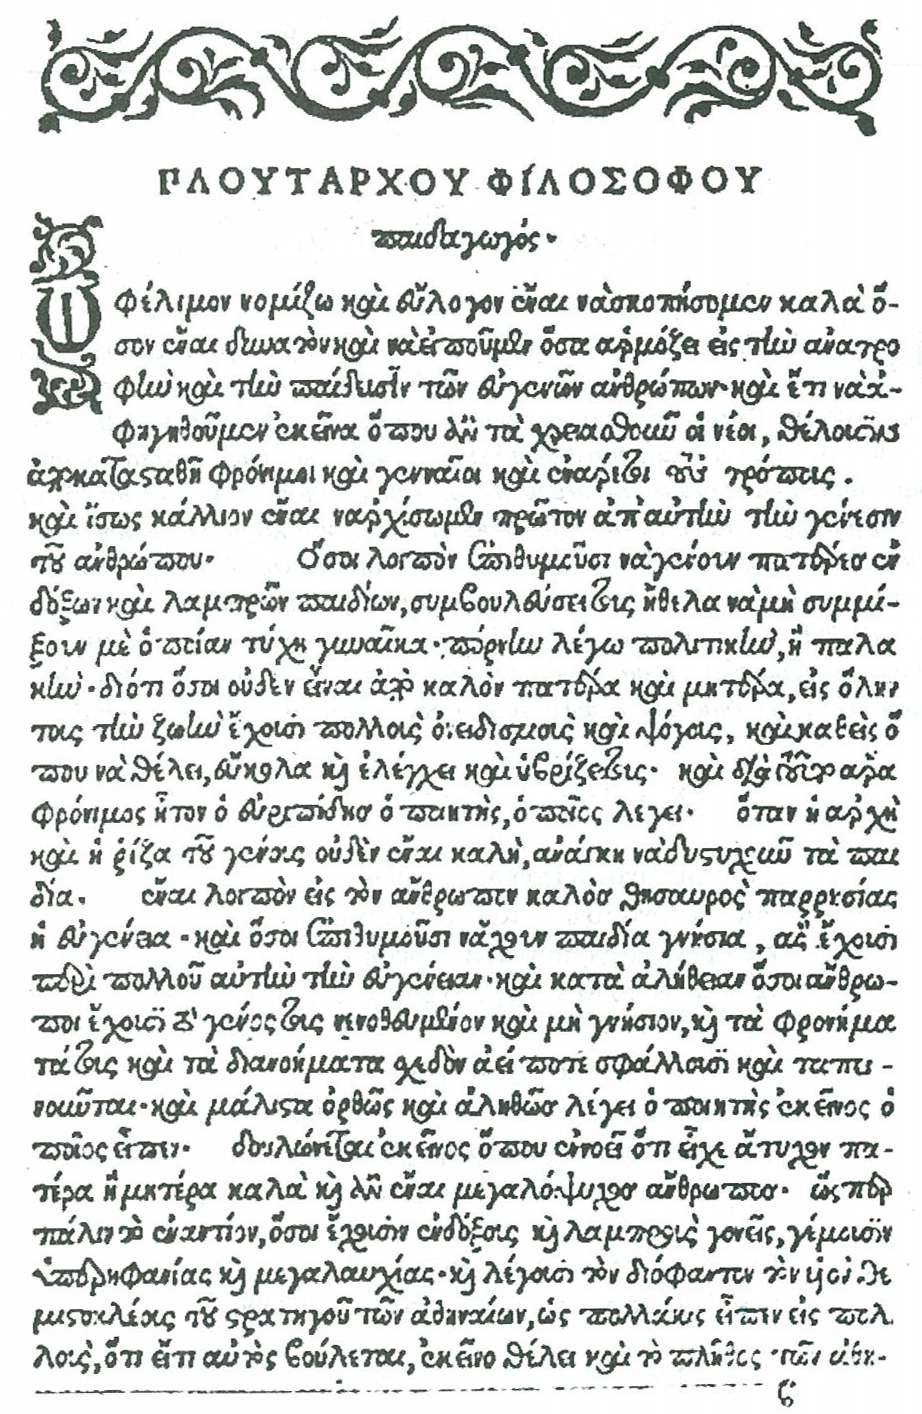 ΠΛΟΥΤΑΡΧΟΥ ΦΙΛΟΣΟΦΟΥ
παιδαγωγός.
Ὠφέλιμον νομίζω καὶ εὔλογον εἶναι νὰ σκοπήσομεν καλὰ ὅ-
σον εἶναι δυνατὸν καὶ νὰ εἰποῦμεν ὅσα ἁρμόζει εἰς τὴν ἀνατρο
φὴν καὶ τὴν παίδευσιν τῶν εὐγενῶν ἀνθρώπων· καὶ ἔτι νὰ ἀ-
φηγηθοῦμεν ἐκεῖνα ὅπου ἂν τὰ χρειασθοῦν οἱ νέοι, θέλουσιν
καταςαθῆ φρόνιμοι καὶ γενναῖοι καὶ ἐνάρετοι τοὺς τρόπους.
καὶ ἴσως κάλλιον εἶναι νἀρχίσωμεν πρῶτον ἀπ' αὐτὴν τὴν γένεσιν
τοῦ ἀνθρώπου. Ὅσοι λοιπὸν ἐπιθυμοῦσι νὰ γένουν πατέρες ἐν
δόξων καὶ λαμπρῶν παιδίων, συμβουλεύσει τους ἤθελα νὰ μὴ συμμί-
ξουν μὲ ὁποίαν τύχη γυναῖκα· πόρνην λέγω πολιτικὴν, ἢ παλα
κήν· διότι ὅσοι οὐδὲν εἶναι ἀπὸ καλὸν πατέρα καὶ μητέρα, εἰς ὅλην
τους τὴν ζωὴν ἔχουσι πολλοὺς ὀνειδισμοὺς καὶ ψόγους, καὶ καθεὶς ὅ
που νὰ θέλει, εὔκολα καὶ ἐλέγχει καὶ ὑβρίζει τους. καὶ διὰ τοῦτο ἄρα
φρόνιμος ἦτον ὁ εὐριπίδης ὁ ποιητὴς, ὁ ποῖος λέγει. ὅταν ἡ ἀρχὴ
καὶ ἡ ῥίζα τοῦ γένους οὐδὲν εἶναι καλὴ, ἀνάγκη νὰ δυςυχοῦν τὰ παι
δία. εἶναι λοιπὸν εἰς τὸν ἄνθρωπον καλὸς θησαυρὸς παρρησίας
ἡ εὐγένεια· καὶ ὅσοι ἐπιθυμοῦσι νἄχουν παιδία γνήσια, ἂς ἔχουσι
περὶ πολλοῦ αὐτὴν τὴν εὐγένειαν· καὶ κατὰ ἀλήθειαν ὅσοι ἄνθρω-
ποι ἔχουσι τὸ γένος τους νενοθευμένον καὶ μὴ γνήσιον, καὶ τὰ φρονήμα
τά τους καὶ τὰ διανοήματα σχεδὸν ἀεί ποτε σφάλλουσι καὶ ταπει-
νοῦνται· καὶ μάλιςα ὀρθῶς καὶ ἀληθῶς λέγει ὁ ποιητὴς ἐκεῖνος ὁ
ποῖος εἶπεν. δουλώνεται ἐκεῖνος ὅπου ἐννοεῖ ὅτι εἶχε ἄτυχον πα-
τέρα ἢ μητέρα καλὰ καὶ ἂν εἶναι μεγαλόψυχος ἄνθρωπος. ὥσπερ
πάλιν τὸ ἐναντίον, ὅσοι ἔχουσιν ἐνδόξους καὶ λαμπροὺς γονεῖς, γέμουσιν
ὑπερηφανίας καὶ μεγαλαυχίας· καὶ λέγουσι τὸν διόφαντον τὸν υἱὸν θε
μιςοκλέους τοῦ ςρατηγοῦ τῶν ἀθηναίων, ὡς πολλάκις εἶπεν εἰς πολ
λοὺς, ὅτι εἴτι αὐτὸς βούλεται, ἐκεῖνο θέλει καὶ τὸ πλῆθος τῶν ἀθη-
ς